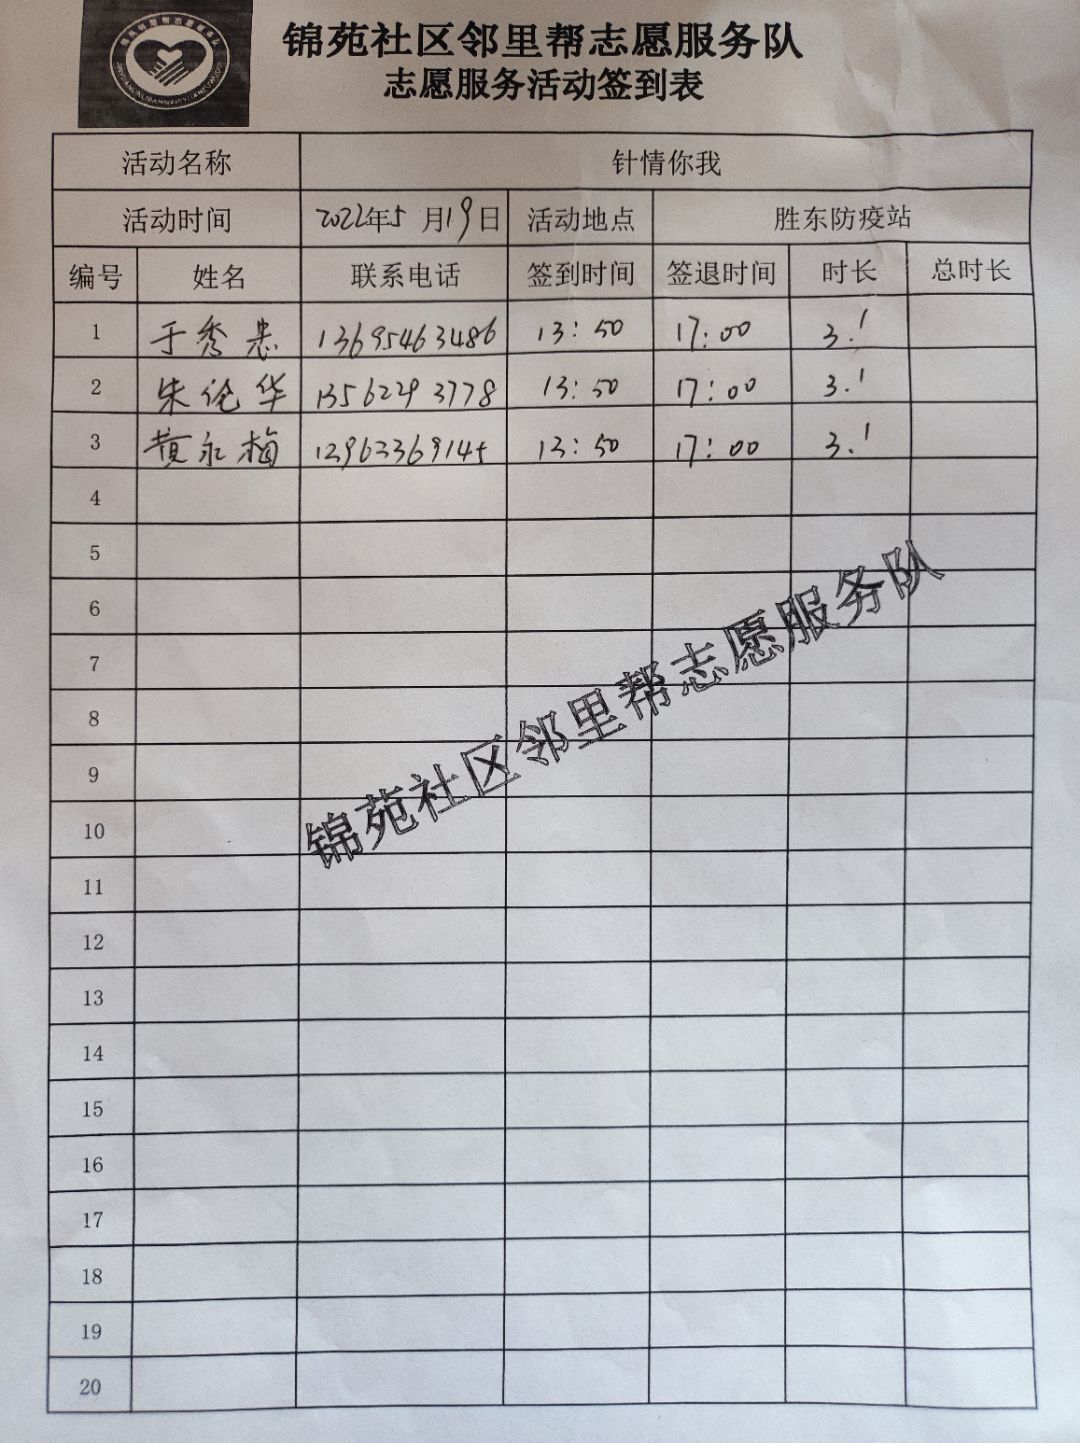 锦苑社区邻里帮志愿服务队
志愿服务活动签到表
活动名称 针情你我
活动时间 2022年5月19日 活动地点 胜东防疫站
编号 姓名 联系电话 签到时间 签退时间 时长 总时长
1 于秀 13695463486 13:50 17:00 3.1
2 朱伦华 13562293778 13:50 17:00 3.1
3 黄永梅 13:50 17:00 3.1
4
5
6
7
8
9
10
11
12
13
14
15
16
17
18
19
20
锦苑社区邻里帮志愿服务队